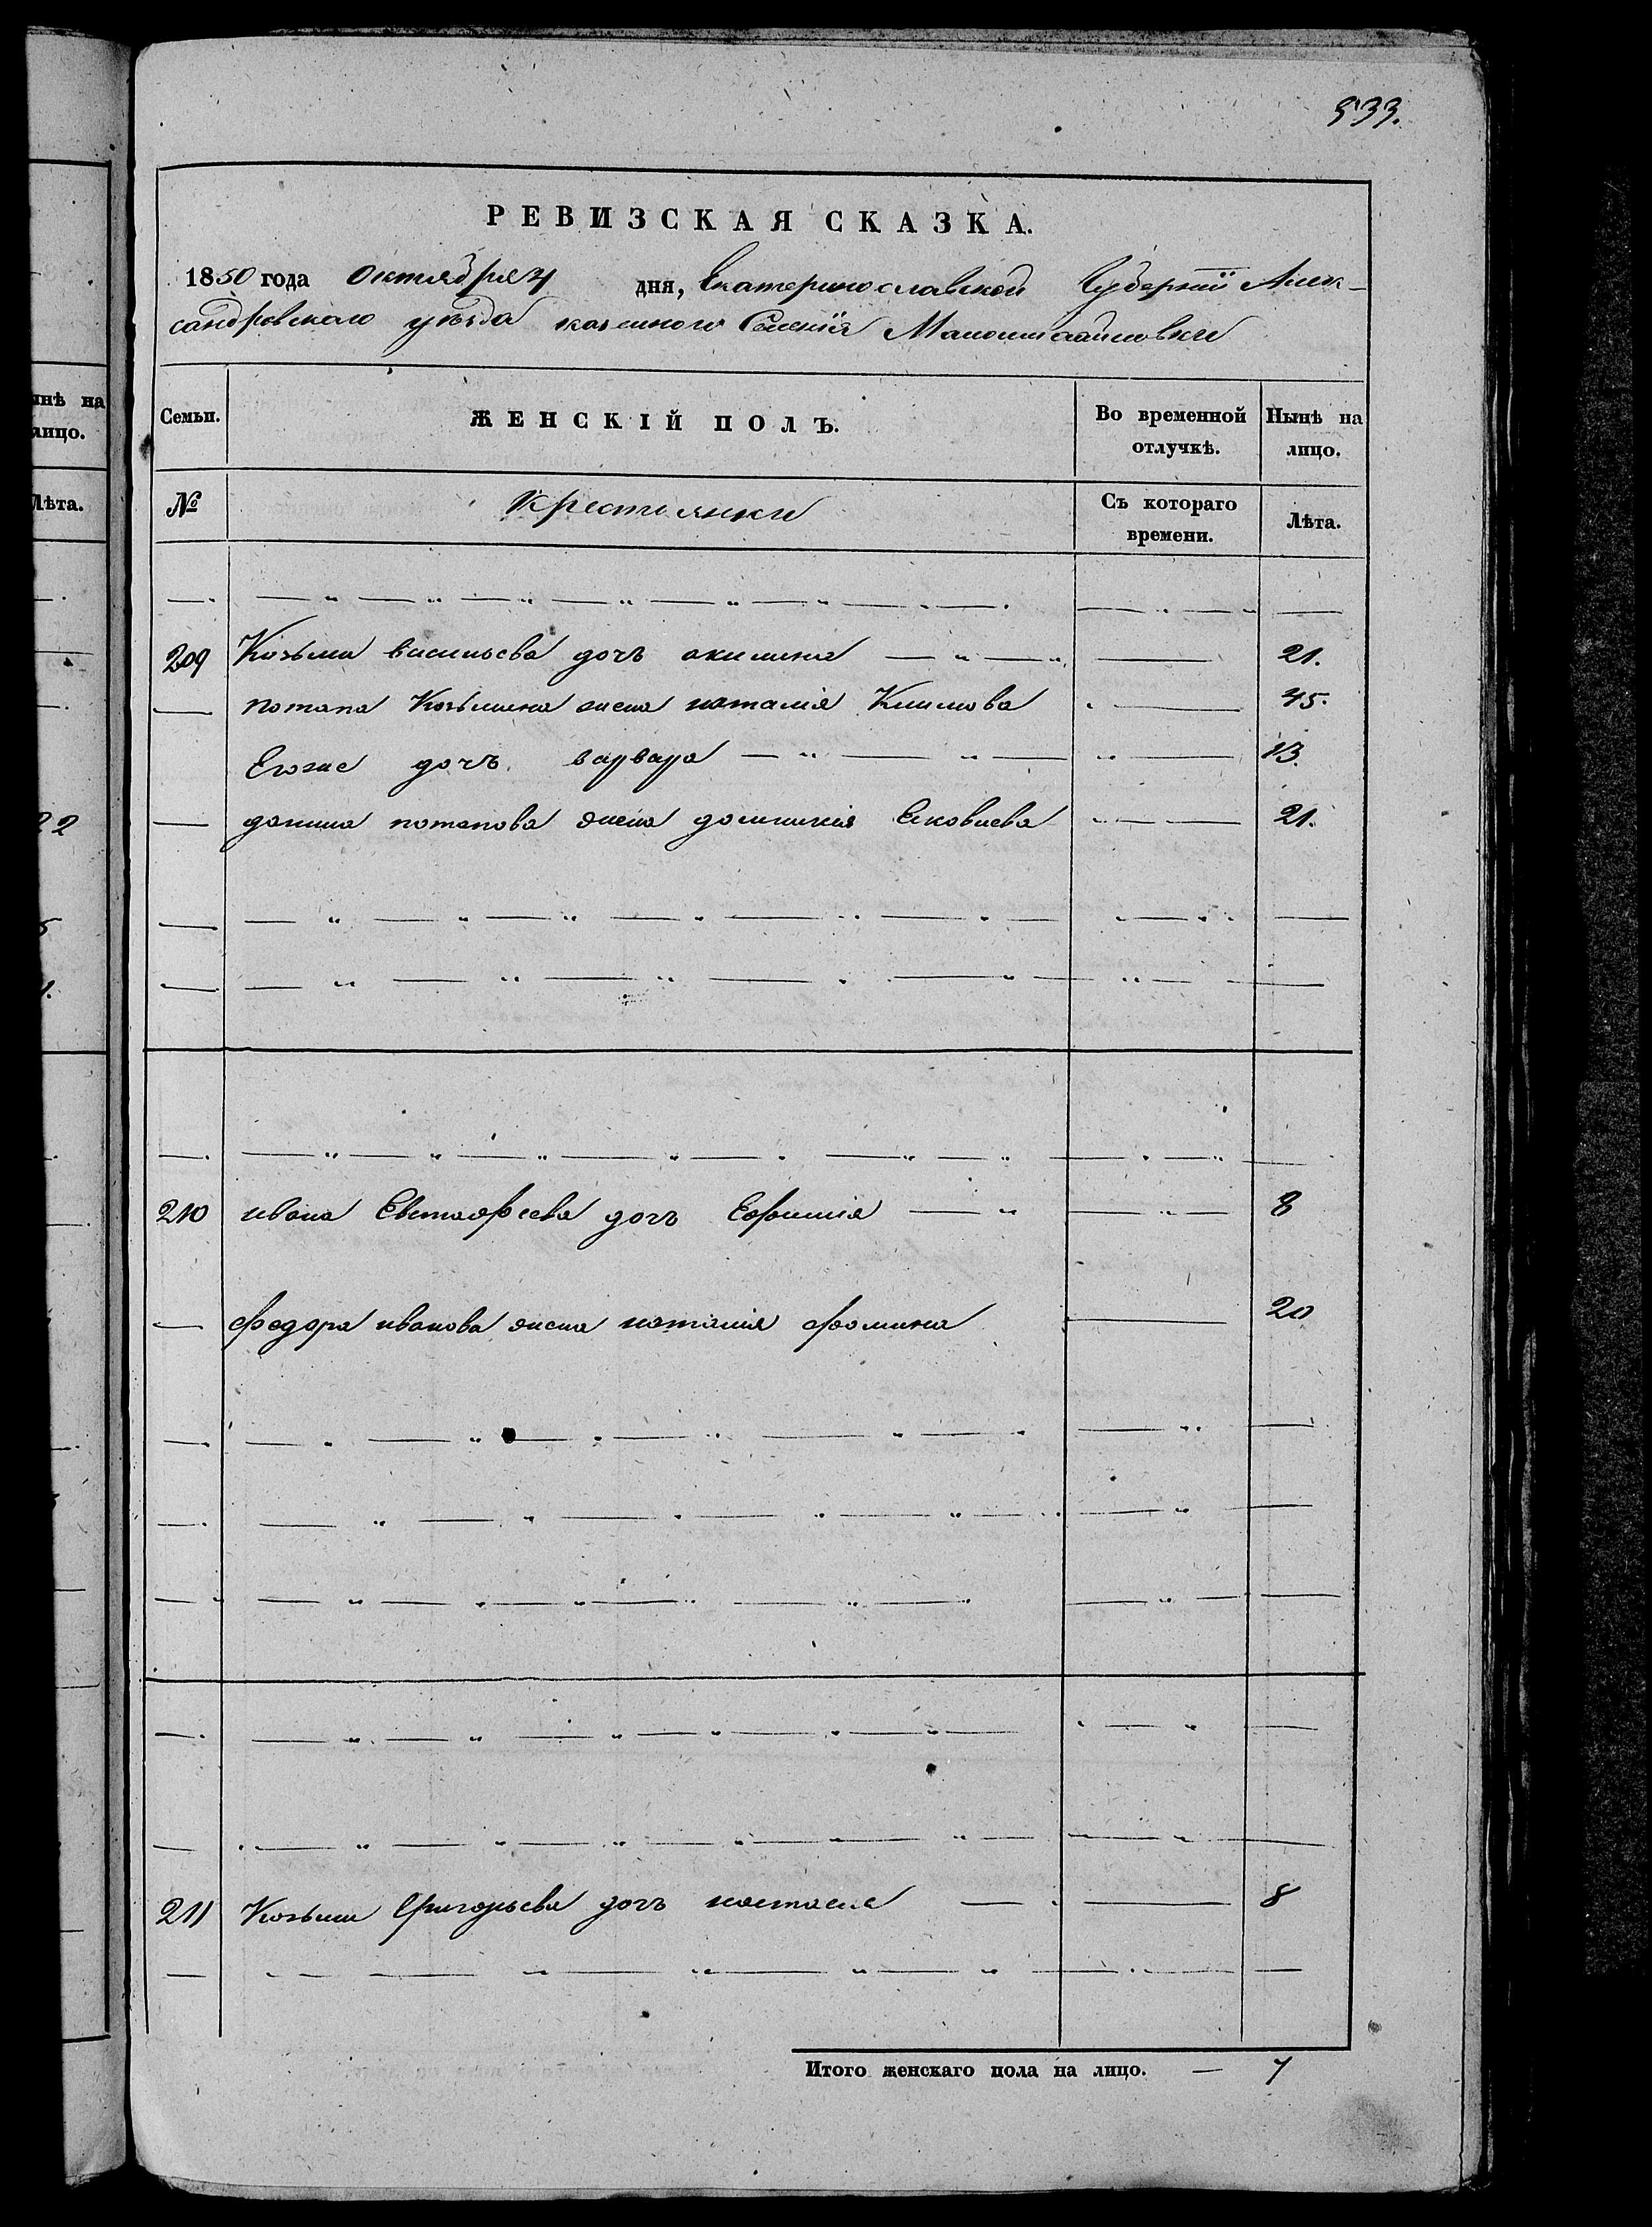 533.
РЕВИЗСКАЯ СКАЗКА.
1850 года Октября 4 дня, Екатеринославской Губернiи Алек-
сандровскаго уѣзда казенного Селенiя Маломихайловки
Семьи. ЖЕНСКІЙ ПОЛЪ. Во временной отлучкѣ. Нынѣ на лицо.
№ Крестьянки Съ котораго времени. Лѣта.
209 Козьмы васильева дочь акилина 21.
потапа Козьмина жена наталiя Климова 45.
Егоже дочь варвара 13.
данила потапова жена домникiя Еяковлева 21.
210 ивана Евстафеева дочь Ефимiя 8
федора иванова жена наталiя фомина 20
211 Козьмы Григорьева дочь настасия 8
Итого женскаго пола на лицо. — 7
нѣ на
лицо.
Лѣта.
22